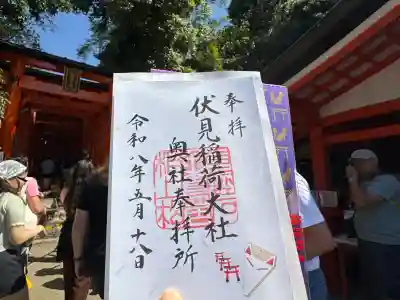 奉拝
伏見稲荷大社
奥社奉拝所
令和八年五月十八日